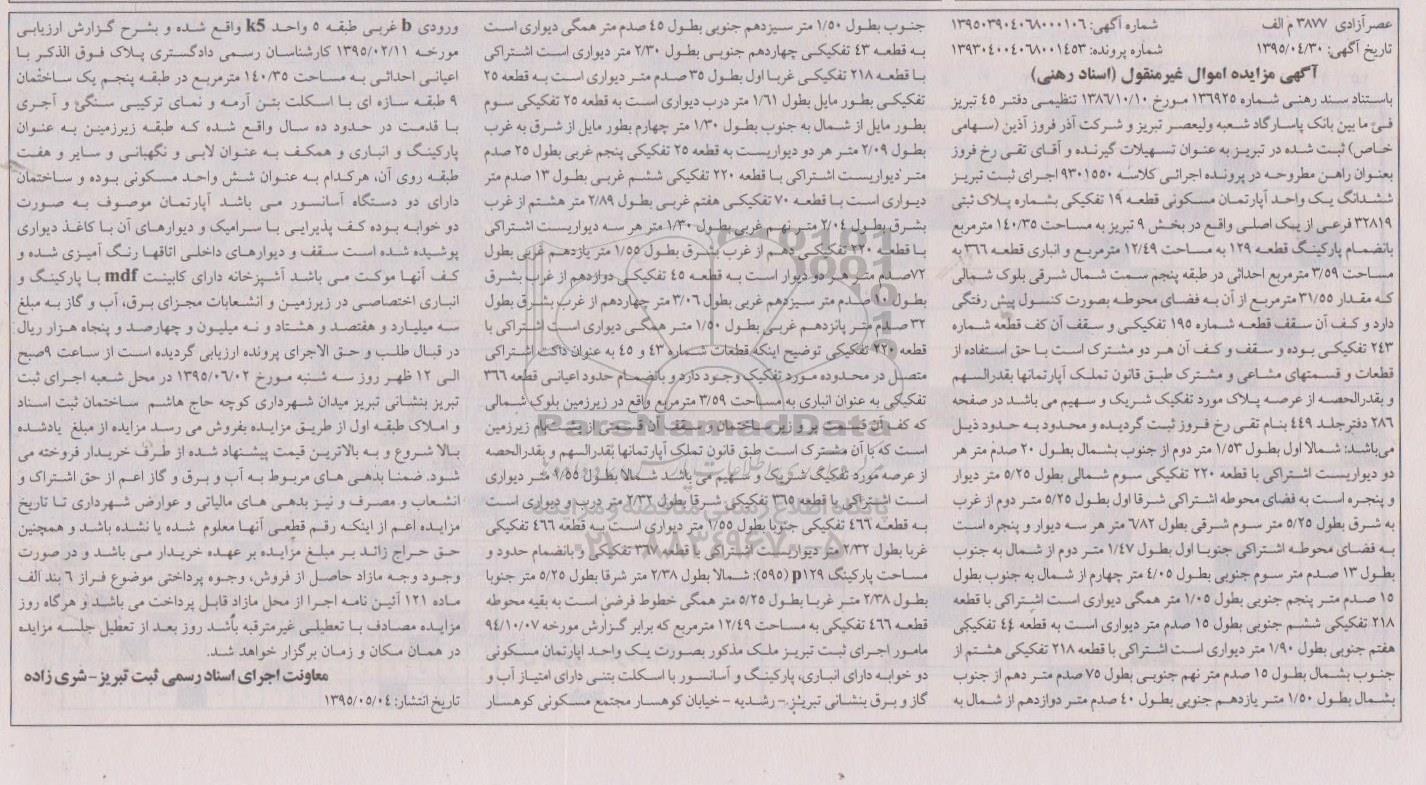 عصرآزادی ۳۸۷۷ م الف
شماره آگهی: ۱۳۹۵۰۳۹۰۴۰۶۸۰۰۰۱۰۶
تاریخ آگهی: ۱۳۹۵/۰۴/۳۰
شماره پرونده: ۱۳۹۳۰۴۰۰۴۰۶۸۰۰۱۴۵۳
آگهی مزایده اموال غیرمنقول (اسناد رهنی)
باستناد سند رهنی شماره ۱۳۶۹۲۵ مورخ ۱۳۸۶/۱۰/۱۰ تنظیمی دفتر ۴۵ تبریز
فی ما بین بانک پاسارگاد شعبه ولیعصر تبریز و شرکت آذر فروز آذین (سهامی
خاص) ثبت شده در تبریز به عنوان تسهیلات گیرنده و آقای تقی رخ فروز
بعنوان راهن مطروحه در پرونده اجرائی کلاسه ۹۳۰۱۵۵۰ اجرای ثبت تبریز
ششدانگ یک واحد آپارتمان مسکونی قطعه ۱۹ تفکیکی بشماره پلاک ثبتی
۳۲۸۱۹ فرعی از یک اصلی واقع در بخش ۹ تبریز به مساحت ۱۴۰/۳۵ مترمربع
بانضمام پارکینگ قطعه ۱۲۹ به مساحت ۱۲/۴۹ مترمربع و انباری قطعه ۳۶۶ به
مساحت ۳/۵۹ مترمربع احداثی در طبقه پنجم سمت شمال شرقی بلوک شمالی
که مقدار ۳۱/۵۵ مترمربع از آن به فضای محوطه بصورت کنسول پیش رفتگی
دارد و کف آن سقف قطعه شماره ۱۹۵ تفکیکی و سقف آن کف قطعه شماره
۲۴۳ تفکیکی بوده و سقف و کف آن هر دو مشترک است با حق استفاده از
قطعات و قسمتهای مشاعی و مشترک طبق قانون تملک آپارتمانها بقدرالسهم
و بقدرالحصه از عرصه پلاک مورد تفکیک شریک و سهیم می باشد در صفحه
۲۸۶ دفترجلد ۴۴۹ بنام تقی رخ فروز ثبت گردیده و محدود به حدود ذیل
می‌باشد: شمالا اول بطول ۱/۵۳ متر دوم از جنوب بشمال بطول ۲۰ صدم متر هر
دو دیواریست اشتراکی با قطعه ۲۲۰ تفکیکی سوم شمالی بطول ۵/۲۵ متر دیوار
و پنجره است به فضای محوطه اشتراکی شرقا اول بطول ۵/۲۵ متر دوم از غرب
به شرق بطول ۵/۲۵ متر سوم شرقی بطول ۶/۸۲ متر هر سه دیوار و پنجره است
به فضای محوطه اشتراکی جنوبا اول بطول ۱/۴۷ متر دوم از شمال به جنوب
بطول ۱۳ صدم متر سوم جنوبی بطول ۴/۰۵ متر چهارم از شمال به جنوب بطول
۱۵ صدم متر پنجم جنوبی بطول ۱/۰۵ متر همگی دیواری است اشتراکی با قطعه
۲۱۸ تفکیکی ششم جنوبی بطول ۱۵ صدم متر دیواری است به قطعه ۴۴ تفکیکی
هفتم جنوبی بطول ۱/۹۰ متر دیواری است اشتراکی با قطعه ۲۱۸ تفکیکی هشتم از
جنوب بشمال بطول ۱۵ صدم متر نهم جنوبی بطول ۷۵ صدم متر دهم از جنوب
بشمال بطول ۱/۵۰ متر یازدهم جنوبی بطول ۴۰ صدم متر دوازدهم از شمال به
جنوب بطول ۱/۵۰ متر سیزدهم جنوبی بطول ۴۵ صدم متر همگی دیواری است
به قطعه ۴۳ تفکیکی چهاردهم جنوبی بطول ۲/۳۰ متر دیواری است اشتراکی
با قطعه ۲۱۸ تفکیکی غربا اول بطول ۳۵ صدم متر دیواری است به قطعه ۲۵
تفکیکی بطور مایل بطول ۱/۶۱ متر درب دیواری است به قطعه ۲۵ تفکیکی سوم
بطور مایل از شمال به جنوب بطول ۱/۳۰ متر چهارم بطور مایل از شرق به غرب
بطول ۲/۰۹ متر هر دو دیواریست به قطعه ۲۵ تفکیکی پنجم غربی بطول ۲۵ صدم
متر دیواریست اشتراکی با قطعه ۲۲۰ تفکیکی ششم غربی بطول ۱۳ صدم متر
دیواری است با قطعه ۷۰ تفکیکی هفتم غربی بطول ۲/۸۹ متر هشتم از غرب
بشرق بطول ۲/۰۴ متر نهم غربی بطول ۱/۳۰ متر هر سه دیواریست اشتراکی
با قطعه ۲۳۰ تفکیکی دهم از غرب بشرق بطول ۱/۵۵ متر یازدهم غربی بطول
۷۲صدم متر هر دو دیوار است به قطعه ۴۵ تفکیکی دوازدهم از غرب بشرق
بطول ۱۰ صدم متر سیزدهم غربی بطول ۳/۰۶ متر چهاردهم از غرب بشرق بطول
۳۲ صدم متر پانزدهم غربی بطول ۱/۵۰ متر همگی دیواری است اشتراکی با
قطعه ۲۲۰ تفکیکی توضیح اینکه قطعات شماره ۴۳ و ۴۵ به عنوان داکت اشتراکی
متصل در محدوده مورد تفکیک وجود دارد و بانضمام حدود اعیانی قطعه ۳۶۶
تفکیکی به عنوان انباری به مساحت ۳/۵۹ مترمربع واقع در زیرزمین بلوک شمالی
که کف آن قسمت بر زیر ساختمان و سقف آن قسمتی از زیرزمین
است که با آن مشترک است طبق قانون تملک آپارتمانها بقدرالسهم و بقدرالحصه
از عرصه مورد تفکیک شریک و سهیم می باشد شمالا بطول ۹/۵۵ متر دیواری
است اشتراکی با قطعه ۳۶۵ تفکیکی شرقا بطول ۲/۳۲ متر درب و دیواری است
به قطعه ۴۶۶ تفکیکی جنوبا بطول ۱/۵۵ متر دیواری است به قطعه ۴۶۶ تفکیکی
غربا بطول ۲/۳۲ متر دیواریست اشتراکی با قطعه ۳۶۷ تفکیکی و بانضمام حدود و
مساحت پارکینگ p۱۲۹ (۵۹۵): شمالا بطول ۲/۳۸ متر شرقا بطول ۵/۲۵ متر جنوبا
بطول ۲/۳۸ متر غربا بطول ۵/۲۵ متر همگی خطوط فرضی است به بقیه محوطه
قطعه ۴۶۶ تفکیکی به مساحت ۱۲/۴۹ مترمربع که برابر گزارش مورخه ۹۴/۱۰/۰۷
مامور اجرای ثبت تبریز ملک مذکور بصورت یک واحد آپارتمان مسکونی
دو خوابه دارای انباری، پارکینگ و آسانسور با اسکلت بتنی دارای امتیاز آب و
گاز و برق بنشانی تبریز- رشدیه - خیابان کوهسار مجتمع مسکونی کوهسار
ورودی b غربی طبقه ۵ واحد k5 واقع شده و بشرح گزارش ارزیابی
مورخه ۱۳۹۵/۰۲/۱۱ کارشناسان رسمی دادگستری پلاک فوق الذکر با
اعیانی احداثی به مساحت ۱۴۰/۳۵ مترمربع در طبقه پنجم یک ساختمان
۹ طبقه سازه ای با اسکلت بتن آرمه و نمای ترکیبی سنگی و آجری
با قدمت در حدود ده سال واقع شده که طبقه زیرزمین به عنوان
پارکینگ و انباری و همکف به عنوان لابی و نگهبانی و سایر و هفت
طبقه روی آن، هرکدام به عنوان شش واحد مسکونی بوده و ساختمان
دارای دو دستگاه آسانسور می باشد آپارتمان موصوف به صورت
دو خوابه بوده کف پذیرایی با سرامیک و دیوارهای آن با کاغذ دیواری
پوشیده شده است سقف و دیوارهای داخلی اتاقها رنگ آمیزی شده و
کف آنها موکت می باشد آشپزخانه دارای کابینت mdf با پارکینگ و
انباری اختصاصی در زیرزمین و انشعابات مجزای برق، آب و گاز به مبلغ
سه میلیارد و هفتصد و هشتاد و نه میلیون و چهارصد و پنجاه هزار ریال
در قبال طلب و حق الاجرای پرونده ارزیابی گردیده است از ساعت ۹صبح
الی ۱۲ ظهر روز سه شنبه مورخ ۱۳۹۵/۰۶/۰۲ در محل شعبه اجرای ثبت
تبریز بنشانی تبریز میدان شهرداری کوچه حاج هاشم ساختمان ثبت اسناد
و املاک طبقه اول از طریق مزایده بفروش می رسد مزایده از مبلغ یادشده
بالا شروع و به بالاترین قیمت پیشنهاد شده از طرف خریدار فروخته می
شود. ضمنا بدهی های مربوط به آب و برق و گاز اعم از حق اشتراک و
انشعاب و مصرف و نیز بدهی های مالیاتی و عوارض شهرداری تا تاریخ
مزایده اعم از اینکه رقم قطعی آنها معلوم شده یا نشده باشد و همچنین
حق حراج زائد بر مبلغ مزایده بر عهده خریدار می باشد و در صورت
وجود وجه مازاد حاصل از فروش، وجوه پرداختی موضوع فراز ۶ بند الف
ماده ۱۲۱ آئین نامه اجرا از محل مازاد قابل پرداخت می باشد و هرگاه روز
مزایده مصادف با تعطیلی غیرمترقبه باشد روز بعد از تعطیل جلسه مزایده
در همان مکان و زمان برگزار خواهد شد.
معاونت اجرای اسناد رسمی ثبت تبریز- شری زاده
تاریخ انتشار: ۱۳۹۵/۰۵/۰۴
ParsNamadData
۰۲۱-۸۸۳۴۹۶۷۰-۵